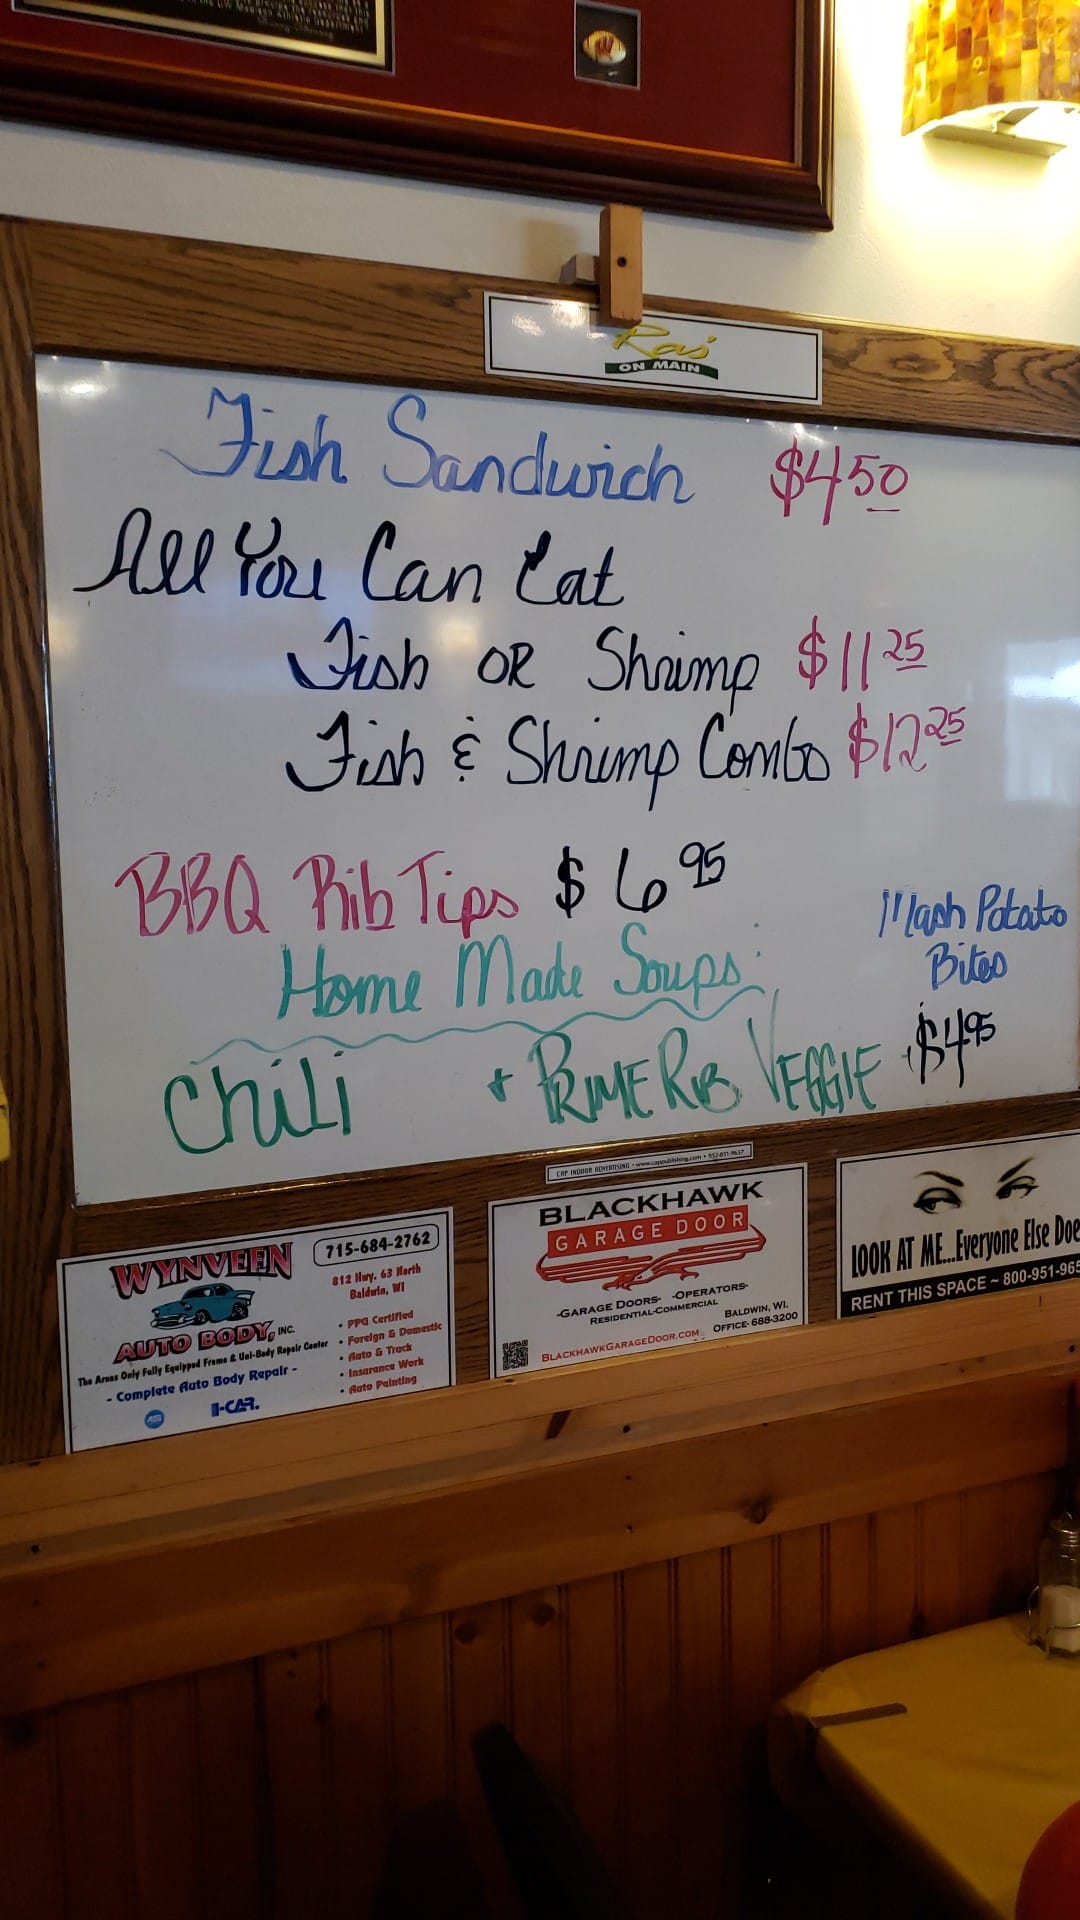 Ras'
ON MAIN
Fish Sandwich $4 50
All You Can Eat
Fish OR Shrimp $11 25
Fish & Shrimp Combo $12 25
BBQ Rib Tips $6 95
Mash Potato
Bites
$4 95
Home Made Soups:
Chili + PRIME RIB VEGGIE
CAP INDOOR ADVERTISING • www.cappublishing.com
WYNVEEN
AUTO BODY, INC.
715-684-2762
812 Hwy. 63 North
Baldwin, WI
The Areas Only Fully Equipped Frame & Uni-Body Repair Center
- Complete Auto Body Repair -
I-CAR.
• PPG Certified
• Foreign & Domestic
• Auto & Truck
• Insurance Work
• Auto Painting
BLACKHAWK
GARAGE DOOR
-GARAGE DOORS- -OPERATORS-
RESIDENTIAL-COMMERCIAL
BALDWIN, WI.
OFFICE- 688-3200
BLACKHAWKGARAGEDOOR.COM
LOOK AT ME...Everyone Else Doe
RENT THIS SPACE ~ 800-951-965